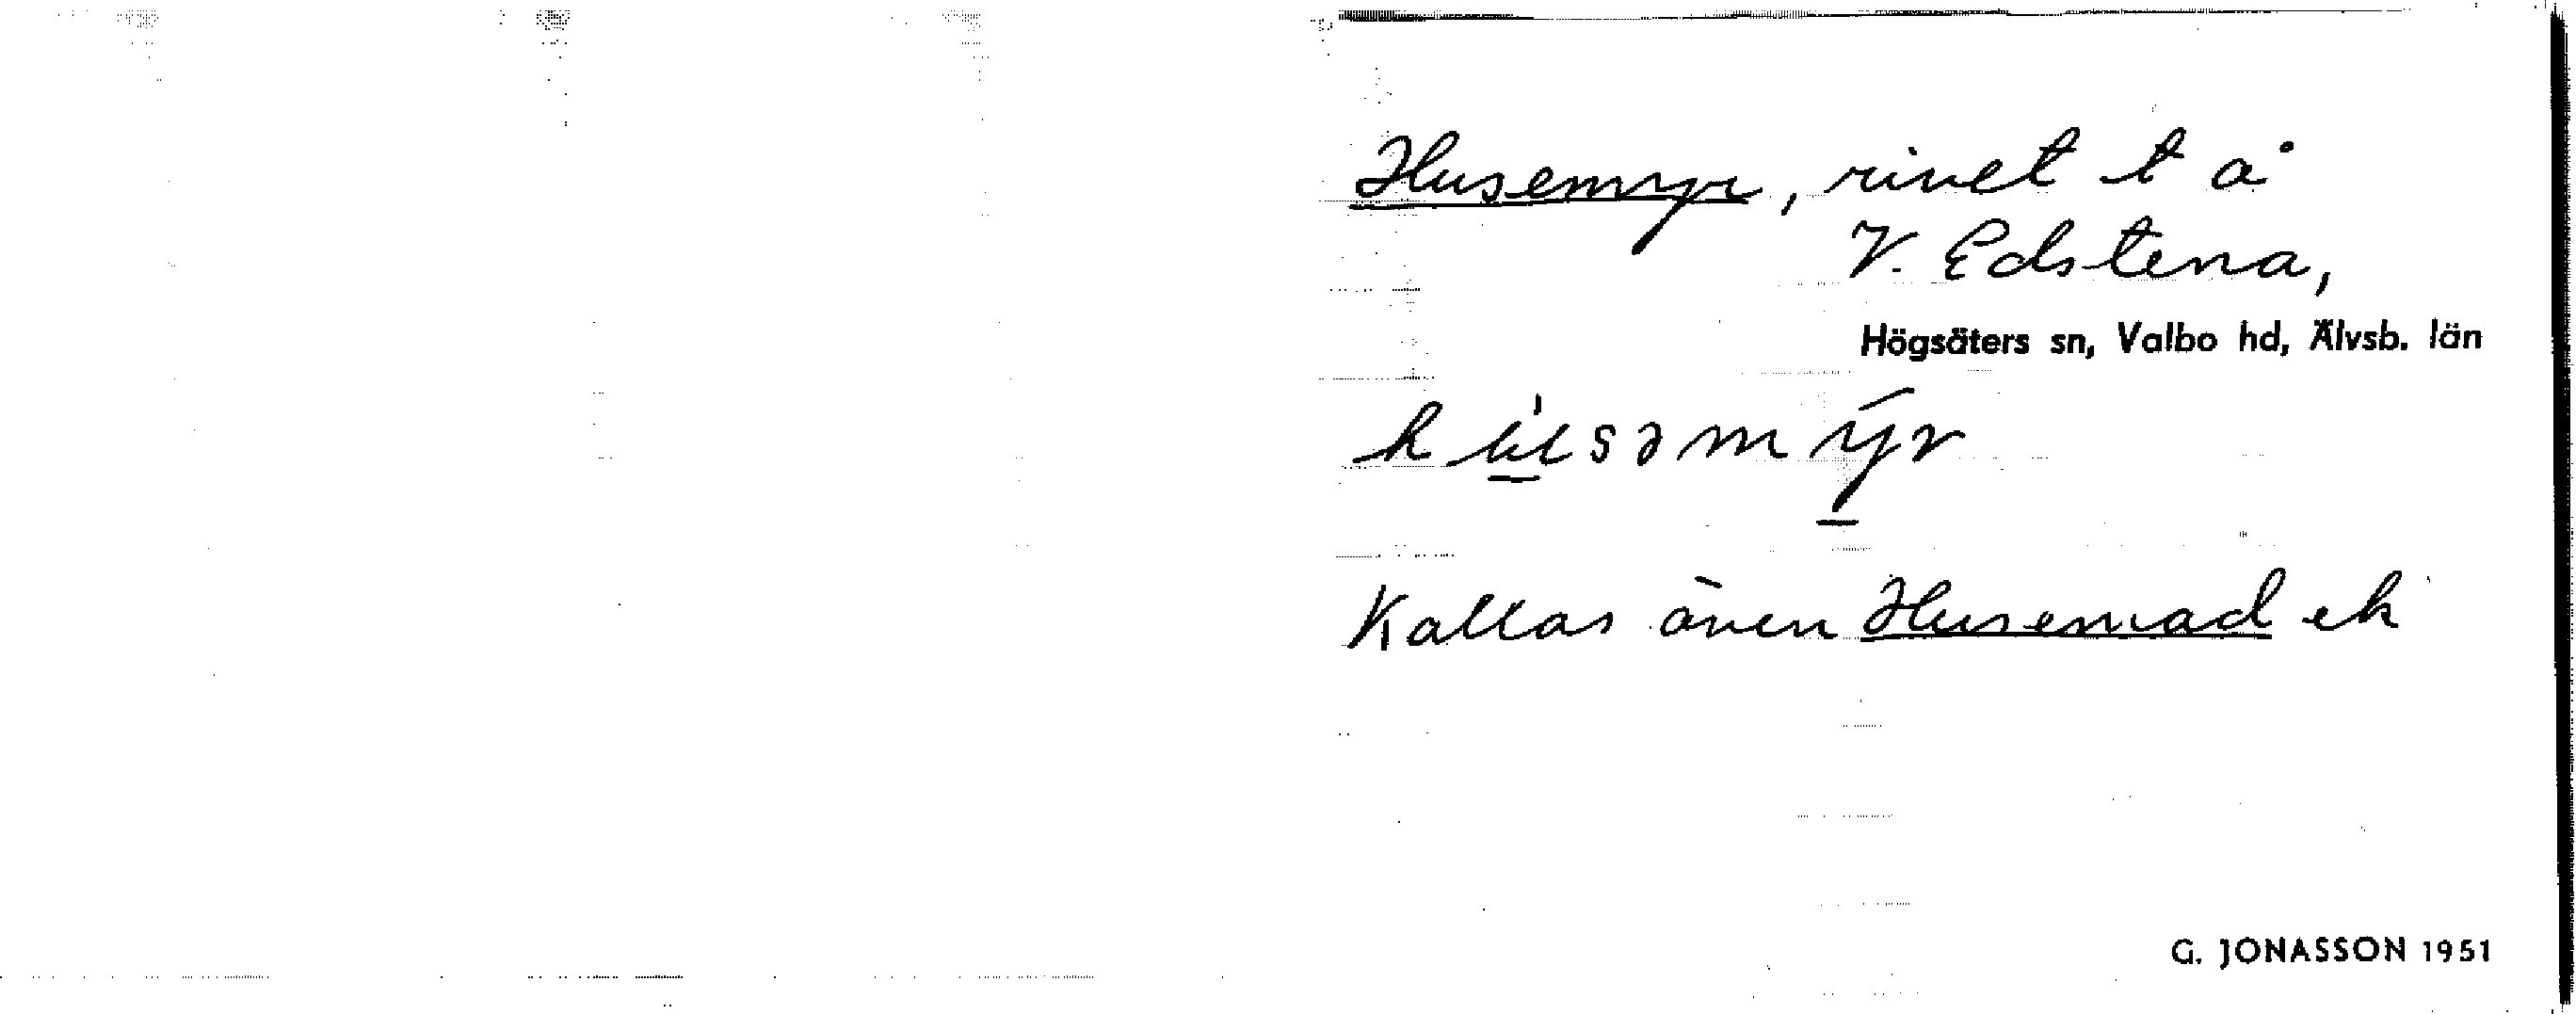 Husemyr, rivet t å
V. Edstena,
Högsäters sn, Valbo hd, Älvsb. län
Kallas även Husemad ek
G. JONASSON 1951